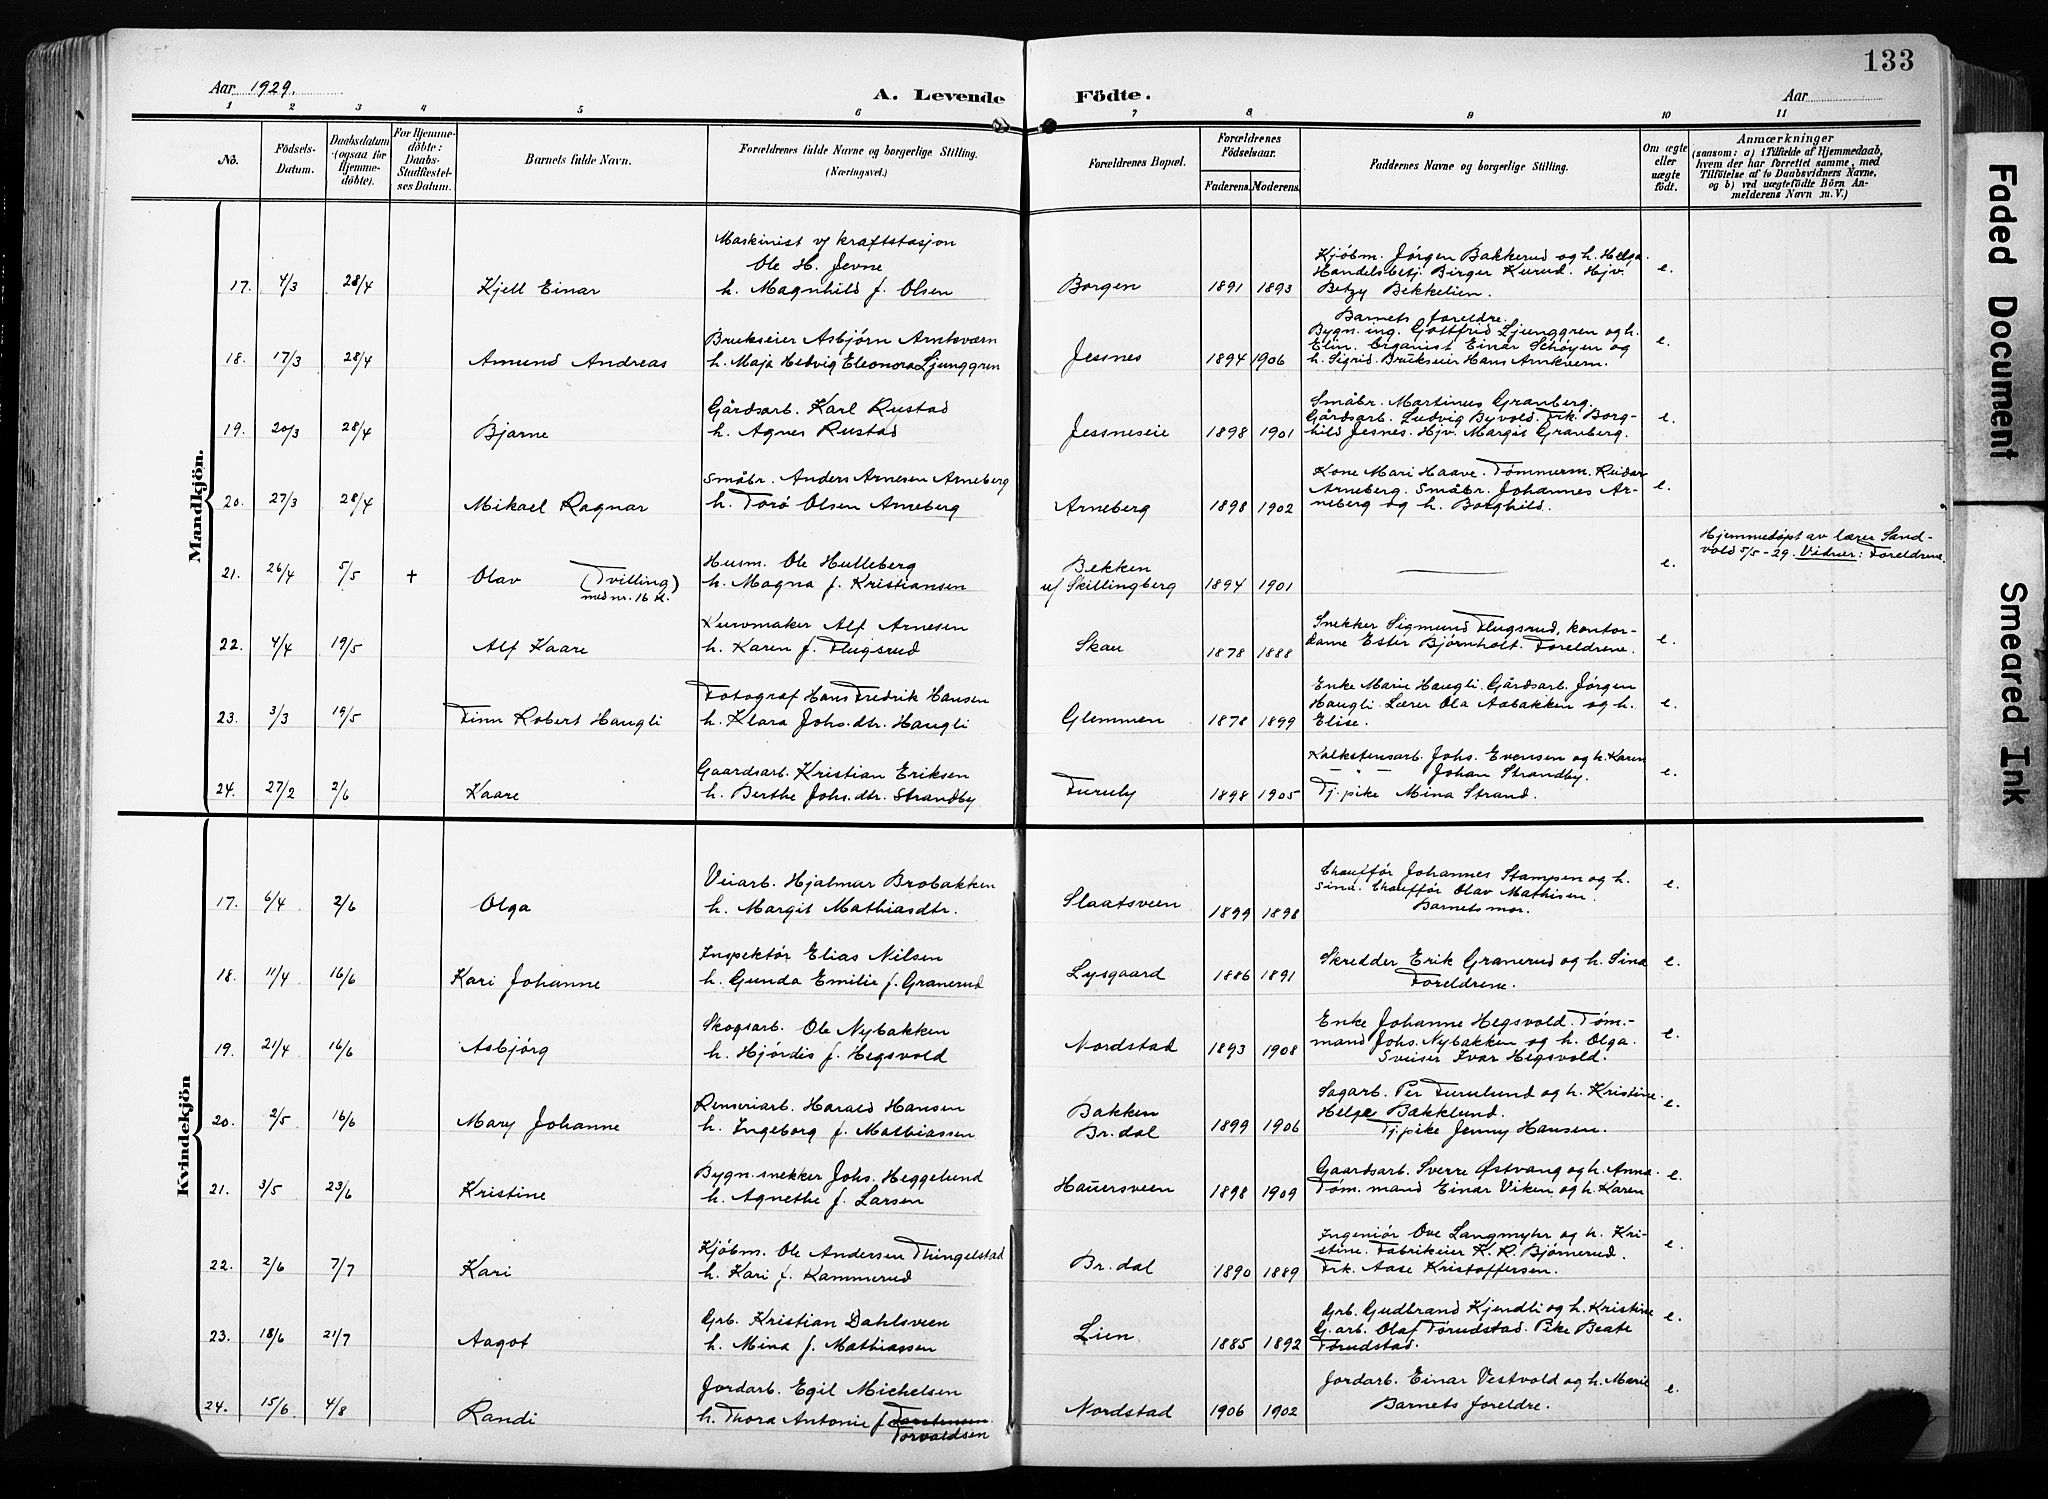 133
Aar 1929.
A. Levende Födte.
Aar
1 2 3 4 5 6 7 8 9 10 11
No.
Födsels-Datum.
Daabsdatum (ogsaa for Hjemme-döbte).
For Hjemme-döbte: Daabs-Stadfæstel-ses Datum.
Barnets fulde Navn.
Forældrenes fulde Navne og borgerlige Stilling.
(Næringsvei.)
Forældrenes Bopæl.
Forældrenes Födselsaar.
Faderens. Moderens.
Faddernes Navne og borgerlige Stilling.
Om ægte eller uægte födt.
Anmærkninger
(saasom: a) i Tilfælde af Hjemmedaab,
hvem der har forrettet samme, med
Tilföielse af to Daabsvidners Navne,
og b) ved uægtefödte Börn An-
melderens Navn m. V.)
Mandkjön.
Maskinist v/ kraftstasjon
Ole H. Jevne
17. 4/3 28/4 Kjell Einar h. Magnhild f. Olsen Borgen 1891 1893
Kjöbm. Jörgen Bakkerud og h. Helga
Handelsbetj. Birger Kurud. Hjv.
Betzy Bekkelien. e.
Brukseier Asbjørn Arntsværn
18. 17/3 28/4 Amund Andreas h. Maja Hedvig Eleonora Ljunggren Jessnes 1894 1906
Barnets foreldre.
Bygn. ing. Gottfrid Ljunggren og h.
Elin. Organist Einar Schøyen og
h. Sigrid. Brukseier Hans Arnkvern. e.
Gårdsarb. Karl Rustad
19. 20/3 28/4 Bjarne h. Agnes Rustad Jessneseie 1898 1901
Småbr. Martinus Granberg.
Gårdsarb. Ludvig Byvold. Frk. Borg-
hild Jesnes. Hjv. Margit Granberg. e.
Småbr. Anders Arnesen Arneberg
20. 27/3 28/4 Mikael Ragnar h. Torø Olsen Arneberg Arneberg 1898 1902
Kone Mari Haave. Tømmerm. Reidar
Arneberg. Småbr. Johannes Ar-
neberg og h. Borghild. e.
Husm. Ole Hulleberg
21. 26/4 5/5 + Olav (Tvilling) h. Magna f. Kristiansen
med nr. 16 K.
Bekken
u/ Skillingberg 1894 1901 e.
Hjemmedøpt av lærer Sand-
vold 5/5-29. Vidner: Foreldrene.
Kurvmaker Alf Arnesen
22. 4/4 19/5 Alf Kaare h. Karen f. Flugsrud Skau 1878 1888
Snekker Sigmund Flugsrud, kontor-
dame Ester Bjørnholt. Foreldrene. e.
Fotograf Hans Fredrik Hansen
23. 3/3 19/5 Finn Robert Haugli h. Klara Johs.dtr. Haugli Glemmen 1878 1899
Enke Marie Haugli. Gårdsarb. Jørgen
Haugli. Lærer Ola Aabakken og h.
Elise. e.
Gaardsarb. Kristian Eriksen
24. 27/2 2/6 Kaare h. Berthe Johs.dtr. Strandby Furuly 1898 1905
Kalkstensarb. Johs. Evensen og h. Karen
—"— Johan Strandby.
Tj.pike Mina Strand. e.
Kvindekjön
Veiarb. Hjalmar Brobakken
17. 6/4 2/6 Olga h. Margit Mathiasdtr. Slaatsveen 1899 1898
Chauffør Johannes Stampen og h.
Sina. Chauffør Olav Mathisen.
Barnets mor. e.
Inspektør Elias Nilsen
18. 11/4 16/6 Kari Johanne h. Gunda Emilie f. Granerud Lysgaard 1886 1891
Skredder Erik Granerud og h. Sina
Foreldrene. e.
Skogsarb. Ole Nybakken
19. 21/4 16/6 Asbjörg h. Hjördis f. Hegsvold Nordstad 1893 1908
Enke Johanne Hegsvold. Töm-
mand Johs. Nybakken og h. Olga.
Sveiser Ivar Hegsvold. e.
Renseriarb. Harald Hansen
20. 2/5 16/6 Mary Johanne h. Ingeborg f. Mathiassen
Bakken
Br.dal 1899 1906
Sagarb. Per Furulund og h. Kristine.
Helge Bækklund.
Tj.pike Jenny Hansen. e.
Bygn.snekker Johs. Heggelund
21. 3/5 23/6 Kristine h. Agnethe f. Larsen Hauersveen 1898 1909
Gaardsarb. Sverre Østvang og h. Anna.
Töm.mand Einar Viken og h. Karen e.
Kjöbm. Ole Andersen Thingelstad
22. 2/6 7/7 Kari h. Kari f. Kammerud Br.dal 1890 1889
Ingeniør Ove Langmyhr og h. Kri-
stine. Fabrikeier K. R. Bjørnerud.
Frk. Aase Kristoffersen. e.
Grb. Kristian Dahlsveen
23. 18/6 21/7 Aagot h. Mina f. Mathiassen Lien 1885 1892
Grb. Gudbrand Kjendli og h. Kristine
G.arb. Olaf Torudstad. Pike Beate
Torudstad. e.
Jordarb. Egil Michelsen
24. 15/6 4/8 Randi h. Thora Antonie f. Torstensen
Torvaldsen
Nordstad 1906 1902
Jordarb. Einar Vestvold og h. Marie
Barnets foreldre. e.
Faded Document
Smeared Ink